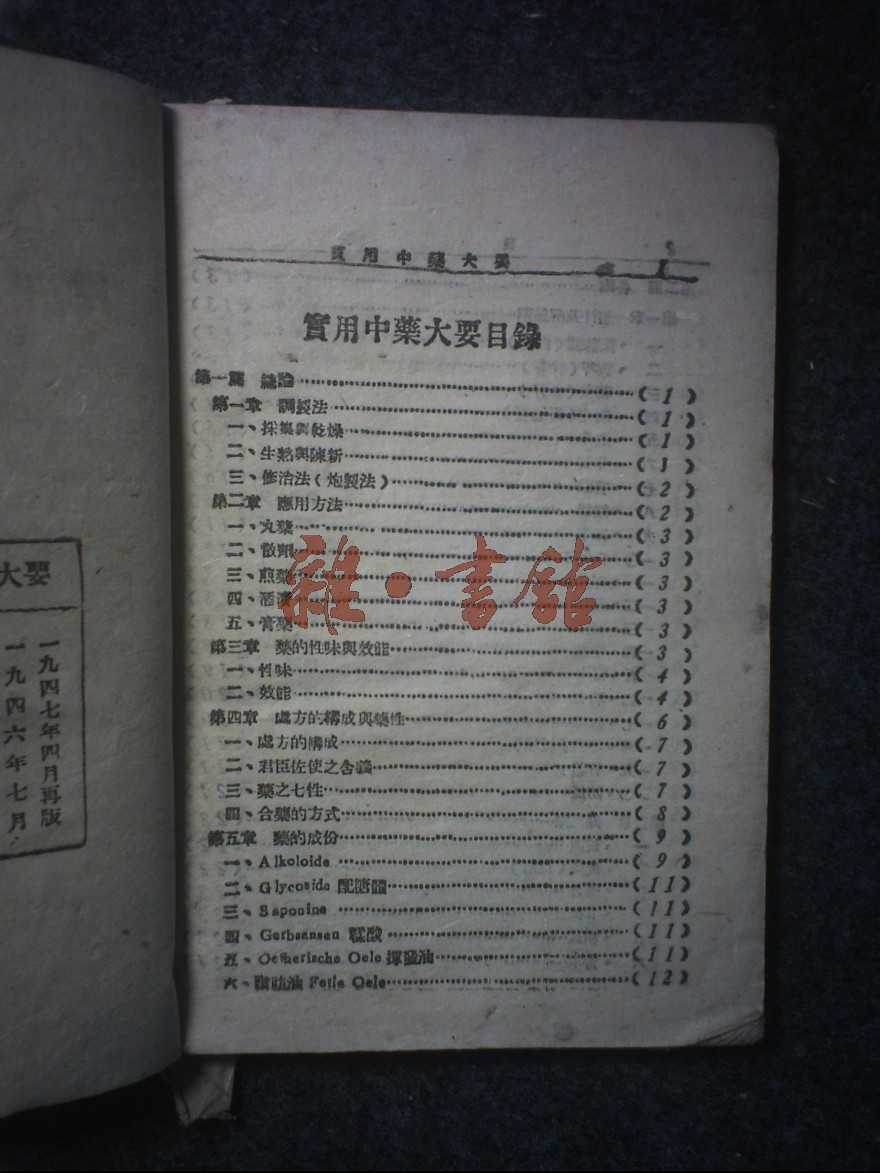 實用中藥大要 1
實用中藥大要目錄
第一篇 總論……(1)
第一章 調製法……(1)
一、採集與乾燥……(1)
二、生熟與陳新……(1)
三、修治法(炮製法)……(2)
第二章 應用方法……(2)
一、丸藥……(3)
二、散劑……(3)
三、煎藥……(3)
四、酒……(3)
五、膏藥……(3)
第三章 藥的性味與效能……(3)
一、性味……(4)
二、效能……(4)
第四章 處方的構成與藥性……(6)
一、處方的構成……(7)
二、君臣佐使之含義……(7)
三、藥之七性……(7)
四、合藥的方式……(8)
第五章 藥的成份……(9)
一、Alkoloide……(9)
二、Glycoside 配糖體……(11)
三、Saponine……(11)
四、Gerbsausen 鞣酸……(11)
五、Oetherische Oele 揮發油……(11)
六、脂肪油 Fette Oele……(12)
雜·書館
大要
一九四七年四月再版
一九四六年七月